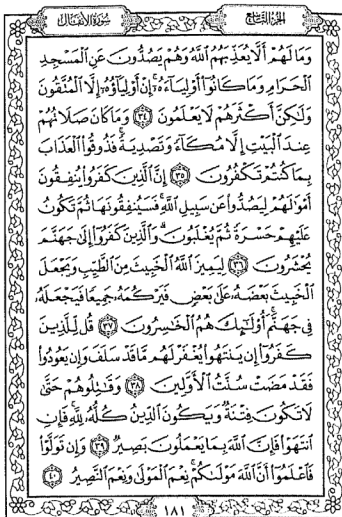 الجزء التاسع
سورة الأنفال
وَمَا لَهُمْ أَلَّا يُعَذِّبَهُمُ اللَّهُ وَهُمْ يَصُدُّونَ عَنِ الْمَسْجِدِ
الْحَرَامِ وَمَا كَانُوا أَوْلِيَاءَهُ إِنْ أَوْلِيَاؤُهُ إِلَّا الْمُتَّقُونَ
وَلَٰكِنَّ أَكْثَرَهُمْ لَا يَعْلَمُونَ ٣٤ وَمَا كَانَ صَلَاتُهُمْ
عِندَ الْبَيْتِ إِلَّا مُكَاءً وَتَصْدِيَةً فَذُوقُوا الْعَذَابَ
بِمَا كُنتُمْ تَكْفُرُونَ ٣٥ إِنَّ الَّذِينَ كَفَرُوا يُنفِقُونَ
أَمْوَالَهُمْ لِيَصُدُّوا عَن سَبِيلِ اللَّهِ فَسَيُنفِقُونَهَا ثُمَّ تَكُونُ
عَلَيْهِمْ حَسْرَةً ثُمَّ يُغْلَبُونَ وَالَّذِينَ كَفَرُوا إِلَىٰ جَهَنَّمَ
يُحْشَرُونَ ٣٦ لِيَمِيزَ اللَّهُ الْخَبِيثَ مِنَ الطَّيِّبِ وَيَجْعَلَ
الْخَبِيثَ بَعْضَهُ عَلَىٰ بَعْضٍ فَيَرْكُمَهُ جَمِيعًا فَيَجْعَلَهُ
فِي جَهَنَّمَ أُولَٰئِكَ هُمُ الْخَاسِرُونَ ٣٧ قُل لِّلَّذِينَ
كَفَرُوا إِن يَنتَهُوا يُغْفَرْ لَهُم مَّا قَدْ سَلَفَ وَإِن يَعُودُوا
فَقَدْ مَضَتْ سُنَّتُ الْأَوَّلِينَ ٣٨ وَقَاتِلُوهُمْ حَتَّىٰ
لَا تَكُونَ فِتْنَةٌ وَيَكُونَ الدِّينُ كُلُّهُ لِلَّهِ فَإِنِ
انتَهَوْا فَإِنَّ اللَّهَ بِمَا يَعْمَلُونَ بَصِيرٌ ٣٩ وَإِن تَوَلَّوْا
فَاعْلَمُوا أَنَّ اللَّهَ مَوْلَاكُمْ نِعْمَ الْمَوْلَىٰ وَنِعْمَ النَّصِيرُ ٤٠
١٨١